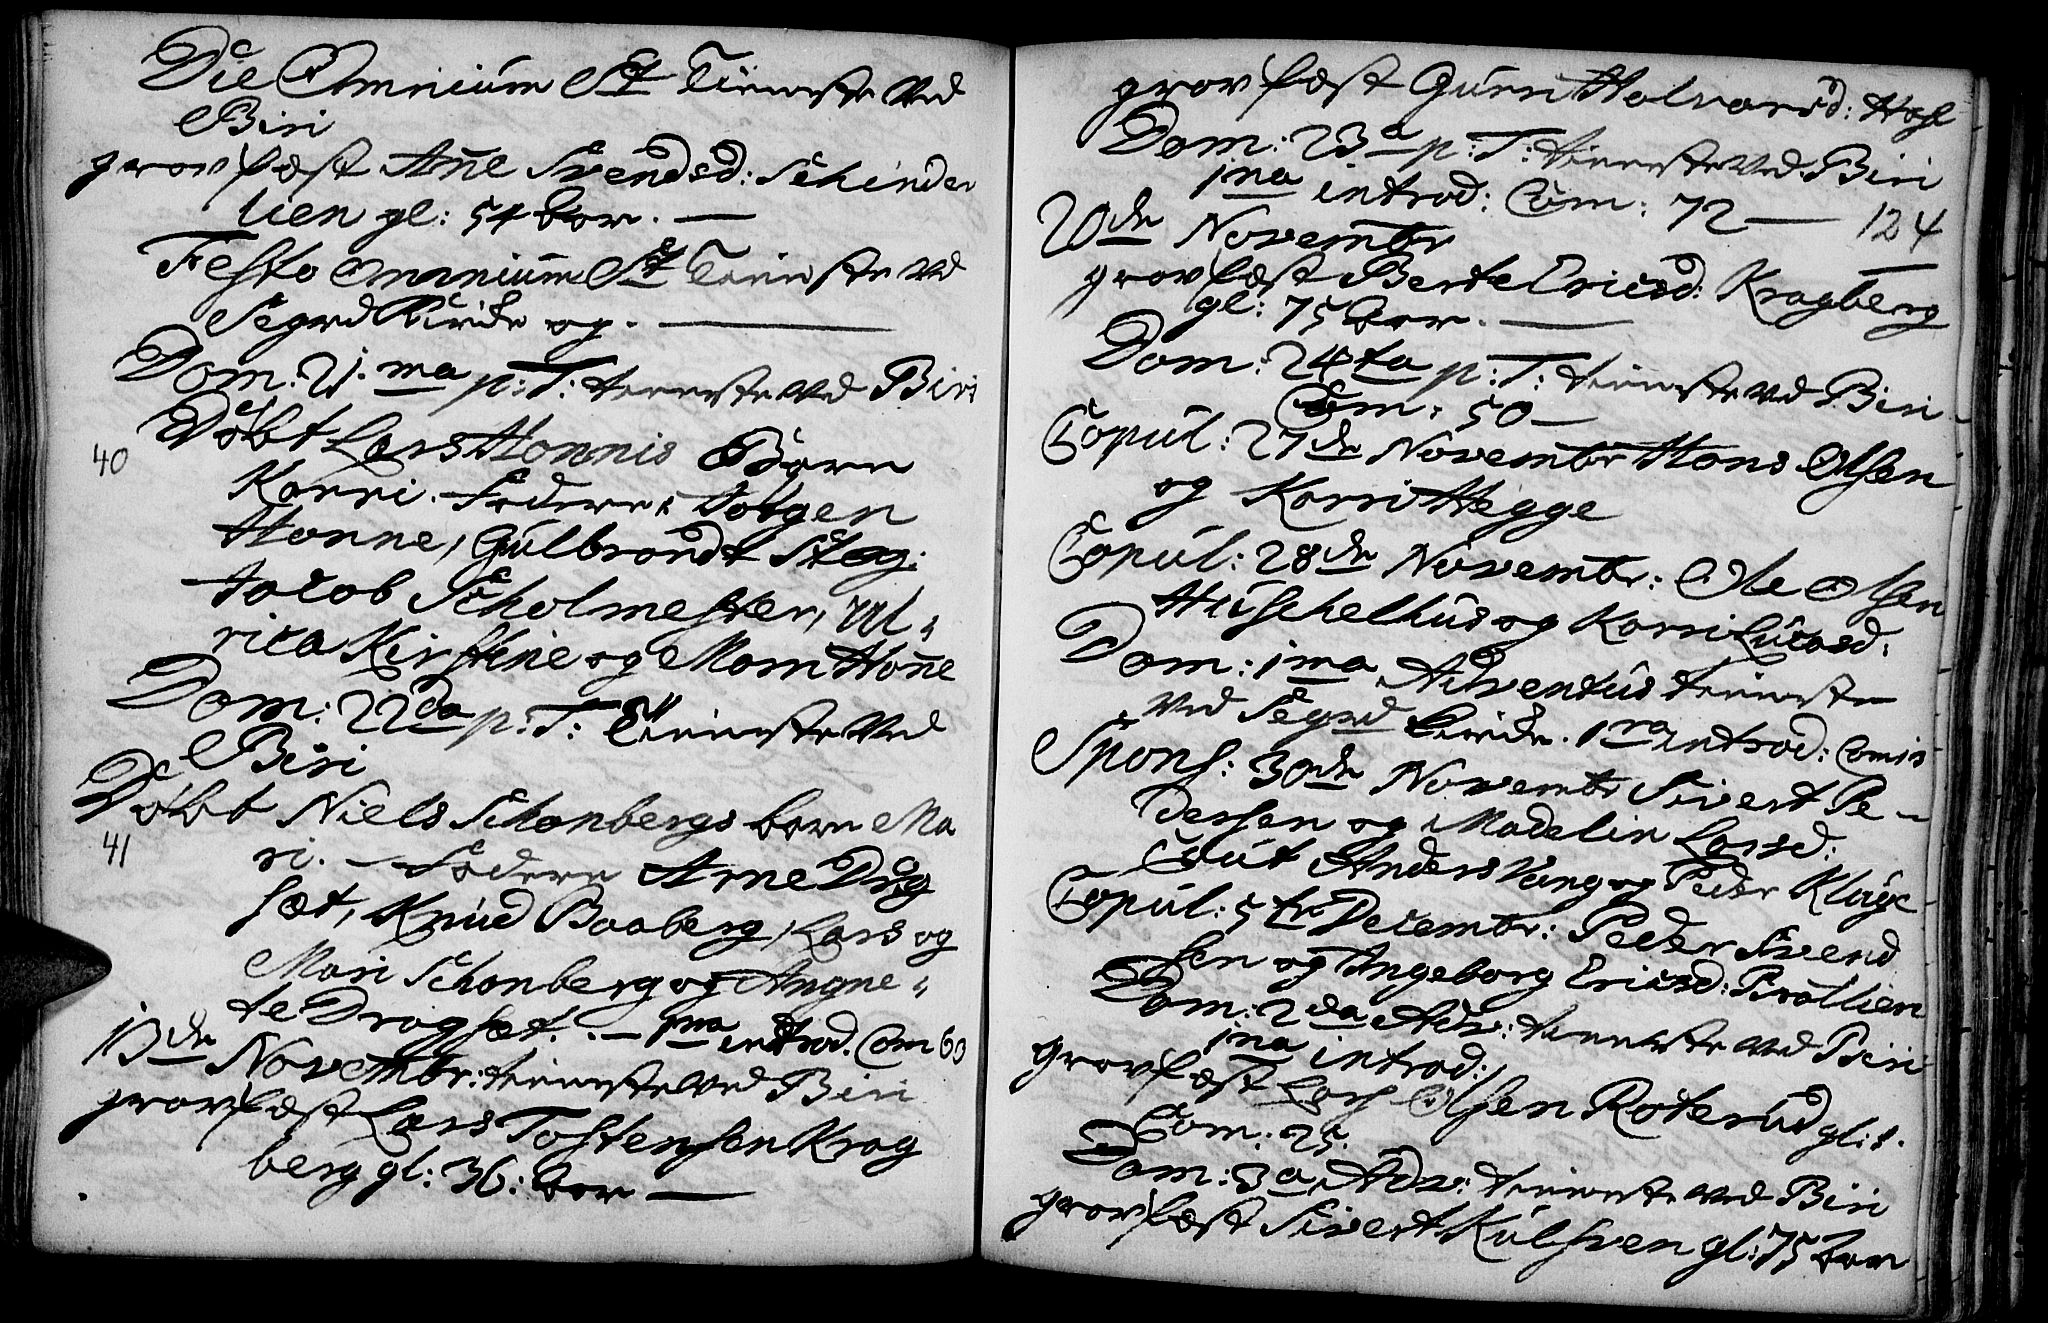 Die Omnium St Tieniste Ved
Biri
grovfæst Añe Svendsd: Schinder
lien gl: 54 bor. —
Festo Omnium St Tieniste Ved
Segrd Kirche og. —
Dom: 21.ma p: T: tieniste Ved Biri
40
Döbt Lars Honnis Børn
Karri. Fadere: Torgen
Honne, Gulbrandt Steg:
Jacob Scholmester, Ul„
rica Kirstine og Marn Hoñe
Dom: 22da p: T: Tieniste Ved
Biri
Döbt Niels Schonbergs born Ma
41
ri. — Fadere Arne Drog
sæt, Knud Baaberg, Lars og
Mari Schonberg og Angne„
te Drogsæt. — 1ma introd. Com 60
13de Novembr: tieniste Ved Biri
grovfæst Lars Tostensen Krag
berg gl: 36: bor —
grovfæst Gurri Halvorsd: Hofl
Dom: 23a p: T: tieniste Ved Biri
1na introd: Com: 72 —
124
20de Novembr
grovfæst Berte Ericsd: Kragberg
gl: 75 bor. —
Dom: 24ta p: T: tieniste Ved Biri
Com: 50 —
Copul: 27de Novembr Hans Olsen
og Karri Hegge
Copul: 28de Novembr: Ole Olsen
Huschelhus og Karri Lucasd:
Dom: 1ma Adventus tieniste
Ved Segrd Kirche. 1na introd: Comis
Spons: 30de Novembr Sivert Pe-
dersen og Madelin Larsd:
Caut Anders Vang og Peder Kluge
Copul: 5te Decembr: Peder Svend
sen og Angeborg Ericsd: Bratlien
Dom: 2da Adv: tieniste Ved Biri
1na introd:
grovfæst Lars Olsen Roterud gl: 1.
Com: 25.
Dom: 3a Adv: tieniste Ved Biri
grovfæst Sivert Kulsven gl: 75 bor